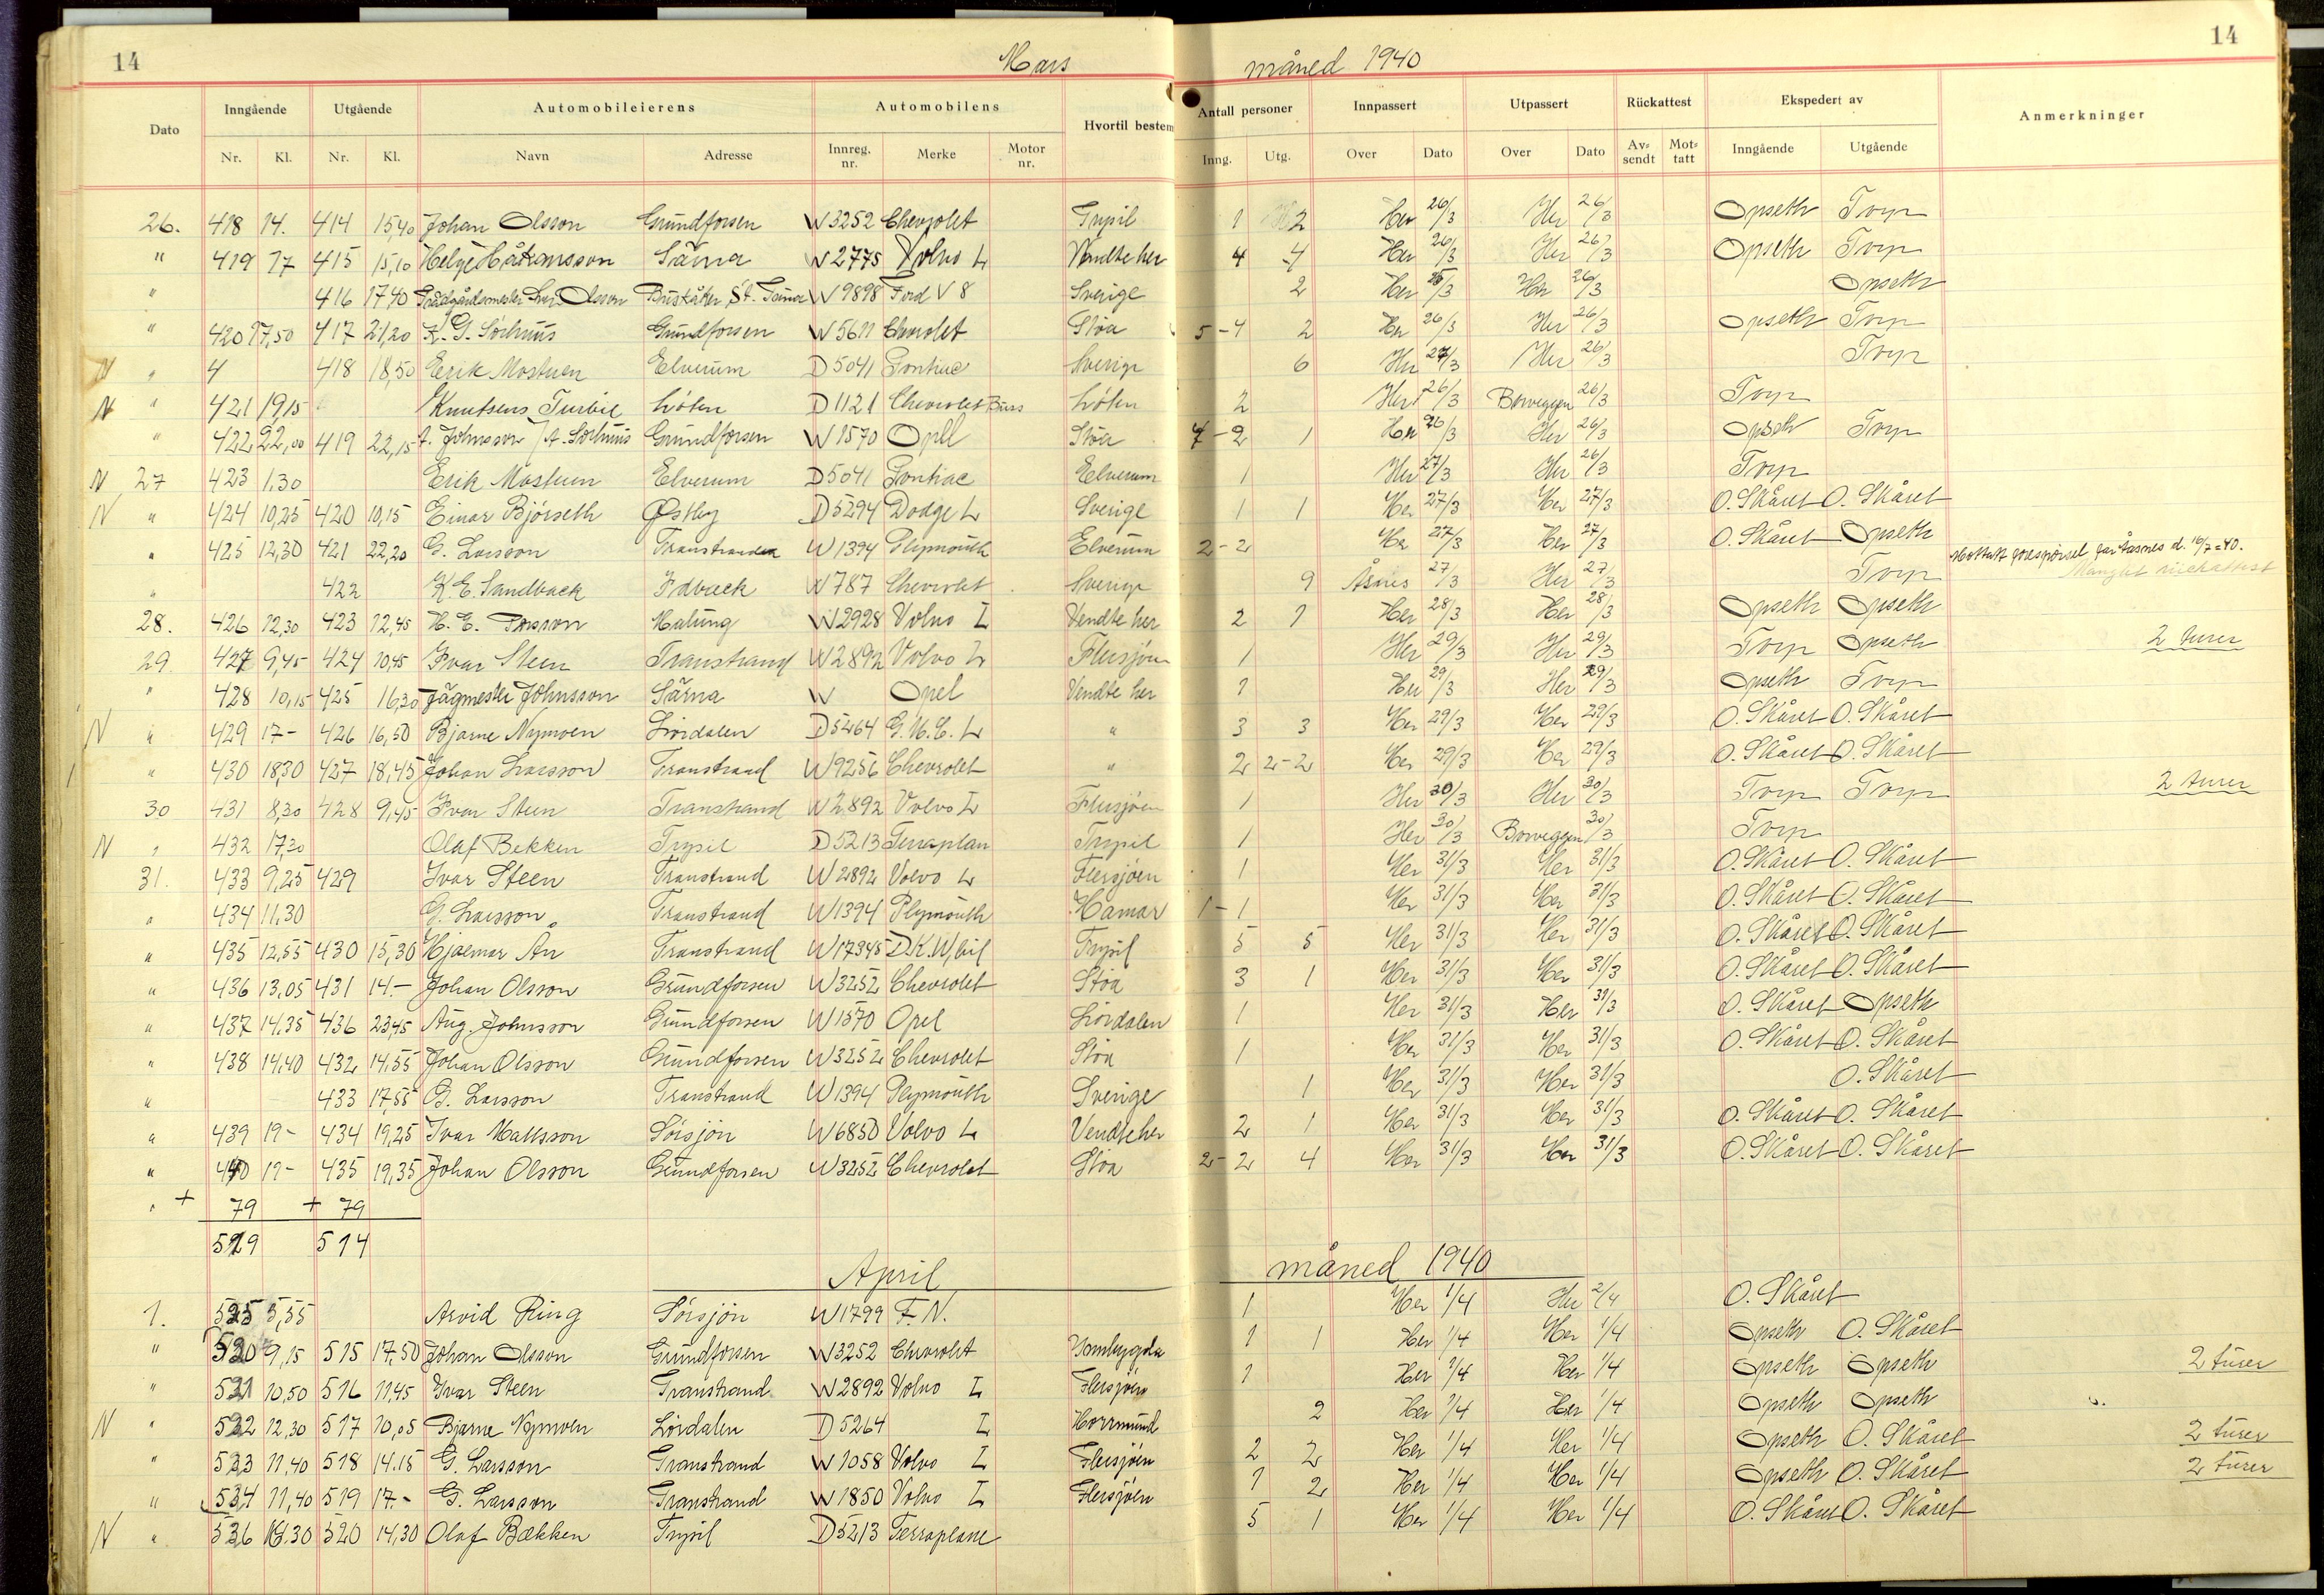 14 Mars måned 1940 14
Dato Inngående Utgående Automobileierens Automobilens Hvortil bestem Antall personer Innpassert Utpassert Rückattest Ekspedert av Anmerkninger
Nr. Kl. Nr. Kl. Navn Adresse Innreg. nr. Merke Motor nr. Inng. Utg. Over Dato Over Dato Av-sendt Mot-tatt Inngående Utgående
26. 418 14. 414 15,40 Johan Olsson Grundforsen W3252 Chevrolet Trysil 1 2 Her 26/3 Her 26/3 Opseth Torp
" 419 17 415 15,10 Helge Håkansson Särna W2775 Volvo L Vendte her 4 4 Her 26/3 Her 26/3 Opseth Torp
" 416 17,40 Olsson W9898 Ford V8 Sverige 2 Her 25/3 Her 26/3 Opseth
" 420 17,50 417 21,20 K. G. Sörhuus Grundforsen W5611 Chevrolet Støa 5-4 2 Her 26/3 Her 26/3 Opseth Torp
N " 4 418 18,50 Erik Mostuen Elverum D5041 Pontiac Sverige 6 Her 27/3 Her 26/3 Torp
N " 421 19,15 Knutsens Turbil Løten D1121 Chevrolet Buss Løten 2 Her 26/3 Borveggen 26/3 Torp
" 422 22,00 419 22,15 A. Johnsson / A. Sörhuus Grundforsen W1570 Opel Støa 4-2 1 Her 26/3 Her 26/3 Opseth Torp
N 27 423 1.30 Erik Mostuen Elverum D5041 Pontiac Elverum 1 Her 27/3 Her 26/3 Torp
N " 424 10,25 420 10,15 Einar Bjørseth Østby D5294 Dodge L Sverige 1 1 Her 27/3 Her 27/3 O. Skåret O. Skåret
" 425 12,30 421 22,20 G. Larsson Transtrand W1394 Plymouth Elverum 2-2 Her 27/3 Her 27/3 O. Skåret Opseth
" 422 K. E. Sandback Idbäck W787 Chevrolet Sverige 9 Åsnes 27/3 Her 27/3 Torp Mottatt forespørsel fra Åsnes d. 16/7-40. Manglet rückattest
28. 426 12,30 423 12,45 H. E. Persson Malung W2928 Volvo L Vendte her 2 1 Her 28/3 Her 28/3 Opseth Opseth
29. 427 9,45 424 10,45 Ivar Steen Transtrand W2892 Volvo L Flersjøen 1 Her 29/3 Her 29/3 Torp Opseth 2 turer
" 428 10,15 425 16,30 Jägmester Johnsson Särna W Opel Vendte her 1 Her 29/3 Her 29/3 Opseth Torp
N " 429 17- 426 16,50 Bjarne Nymoen Lördalen D5264 G.M.C. L " 3 3 Her 29/3 Her 29/3 O. Skåret O. Skåret
" 430 18,30 427 18,45 Johan Larsson Transtrand W9256 Chevrolet " 2 2-2 Her 29/3 Her 29/3 O. Skåret O. Skåret
30 431 8,30 428 9,45 Ivar Steen Transtrand W2892 Volvo L Flersjøen 1 Her 30/3 Her 30/3 Torp Torp 2 turer
N " 432 17,30 Olaf Bekken Trysil D5213 Terraplan Trysil 1 Her 30/3 Borveggen 30/3 Torp
31. 433 9,25 429 Ivar Steen Transtrand W2892 Volvo L Flersjøen 1 Her 31/3 Her 31/3 O. Skåret O. Skåret
" 434 11.30 G. Larsson Transtrand W1394 Plymouth Hamar 1-1 Her 31/3 Her 31/3 O. Skåret O. Skåret
" 435 12,55 430 15,30 Hjalmar Ån Transtrand W17345 D.K.W, bil Trysil 5 5 Her 31/3 Her 31/3 O. Skåret O. Skåret
" 436 13,05 431 14.- Johan Olsson Grundforsen W3252 Chevrolet Støa 3 1 Her 31/3 Her 31/3 O. Skåret O. Skåret
" 437 14,35 436 23,45 Aug. Johnsson Grundforsen W1570 Opel Lördalen 1 Her 31/3 Her 31/3 O. Skåret Opseth
" 438 14,40 432 14,55 Johan Olsson Grundforsen W3252 Chevrolet Støa 1 Her 31/3 Her 31/3 O. Skåret O. Skåret
" 433 17,55 G. Larsson Transtrand W1394 Plymouth Sverige 1 Her 31/3 Her 31/3 O. Skåret
" 439 19- 434 19,25 Ivar Mattsson Sörsjön W6850 Volvo L Vendte her 2 1 Her 31/3 Her 31/3 O. Skåret O. Skåret
" 440 19- 435 19,35 Johan Olsson Grundforsen W3252 Chevrolet Støa 2-2 4 Her 31/3 Her 31/3 O. Skåret O. Skåret
" + 79 + 79
519 514
April måned 1940
1. 525 5,55 Arvid Ring Sörsjön W1799 F.N. 1 Her 1/4 Her 2/4 O. Skåret
" 520 9,15 515 17,50 Johan Olsson Grundforsen W3252 Chevrolet Innbygda 1 1 Her 1/4 Her 1/4 Opseth O. Skåret
" 521 10,50 516 11,45 Ivar Steen Transtrand W2892 Volvo L Flersjøen 1 Her 1/4 Her 1/4 Opseth Opseth 2 turer
N " 522 12,30 517 10,05 Bjarne Nymoen Lördalen D5264 L Horrmund 2 Her 1/4 Her 1/4 Opseth Opseth
" 523 11,40 518 14.15 G. Larsson Transtrand W1058 Volvo L Flersjøen 2 2 Her 1/4 Her 1/4 Opseth O. Skåret 2 turer
" 524 11,40 519 17- G. Larsson Transtrand W1850 Volvo L Flersjøen 1 2 Her 1/4 Her 1/4 Opseth O. Skåret 2 turer
N " 526 14.30 520 14,30 Olaf Bækken Trysil D5213 Terraplane 5 1 Her 1/4 Her 1/4 O. Skåret O. Skåret